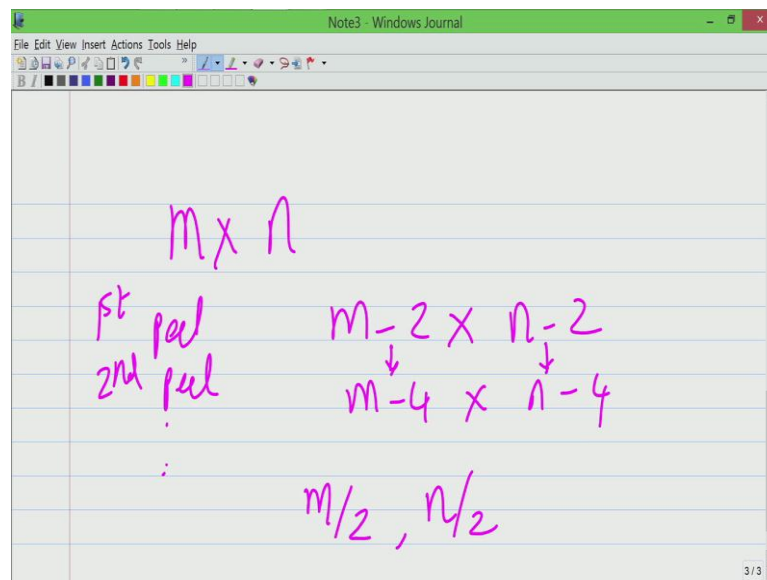 Note3 - Windows Journal
File Edit View Insert Actions Tools Help
B I
m x n
1st peel m-2 x n-2
2nd peel m-4 x n-4
m/2, n/2
3 / 3